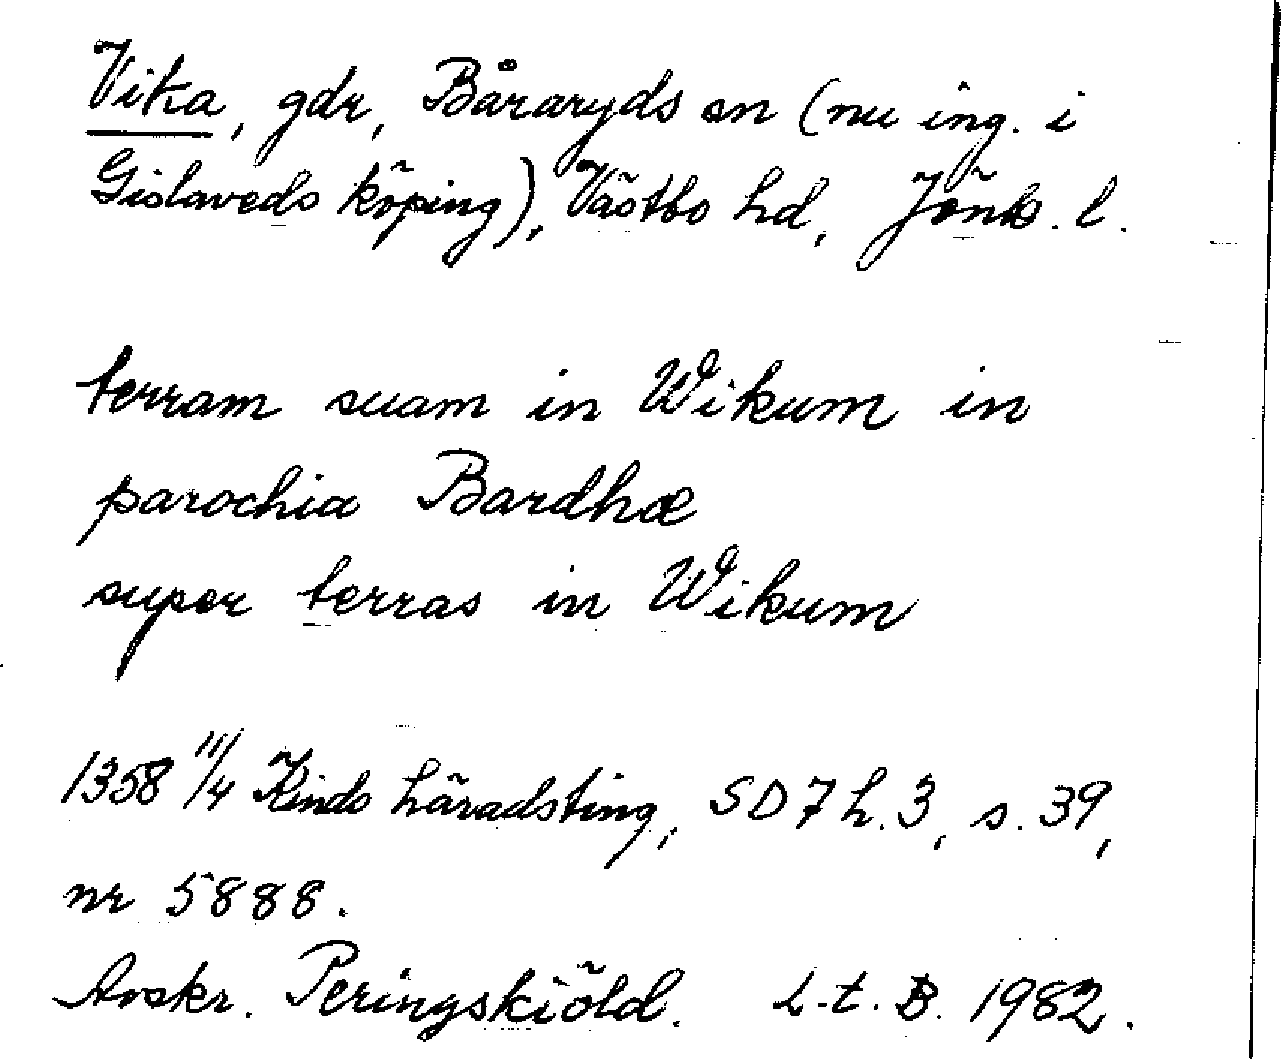 Vika, gdr, Båraryds sn (nu ing. i
Gislaveds köping), Västbo hd, Jönk. l.
terram suam in Wikum in
parochia Bardhæ
super terras in Wikum
1358 11/4 Kinds häradsting, SD 7 h. 3, s. 39,
nr 5888.
Avskr. Peringskiöld. L-t. B. 1982.